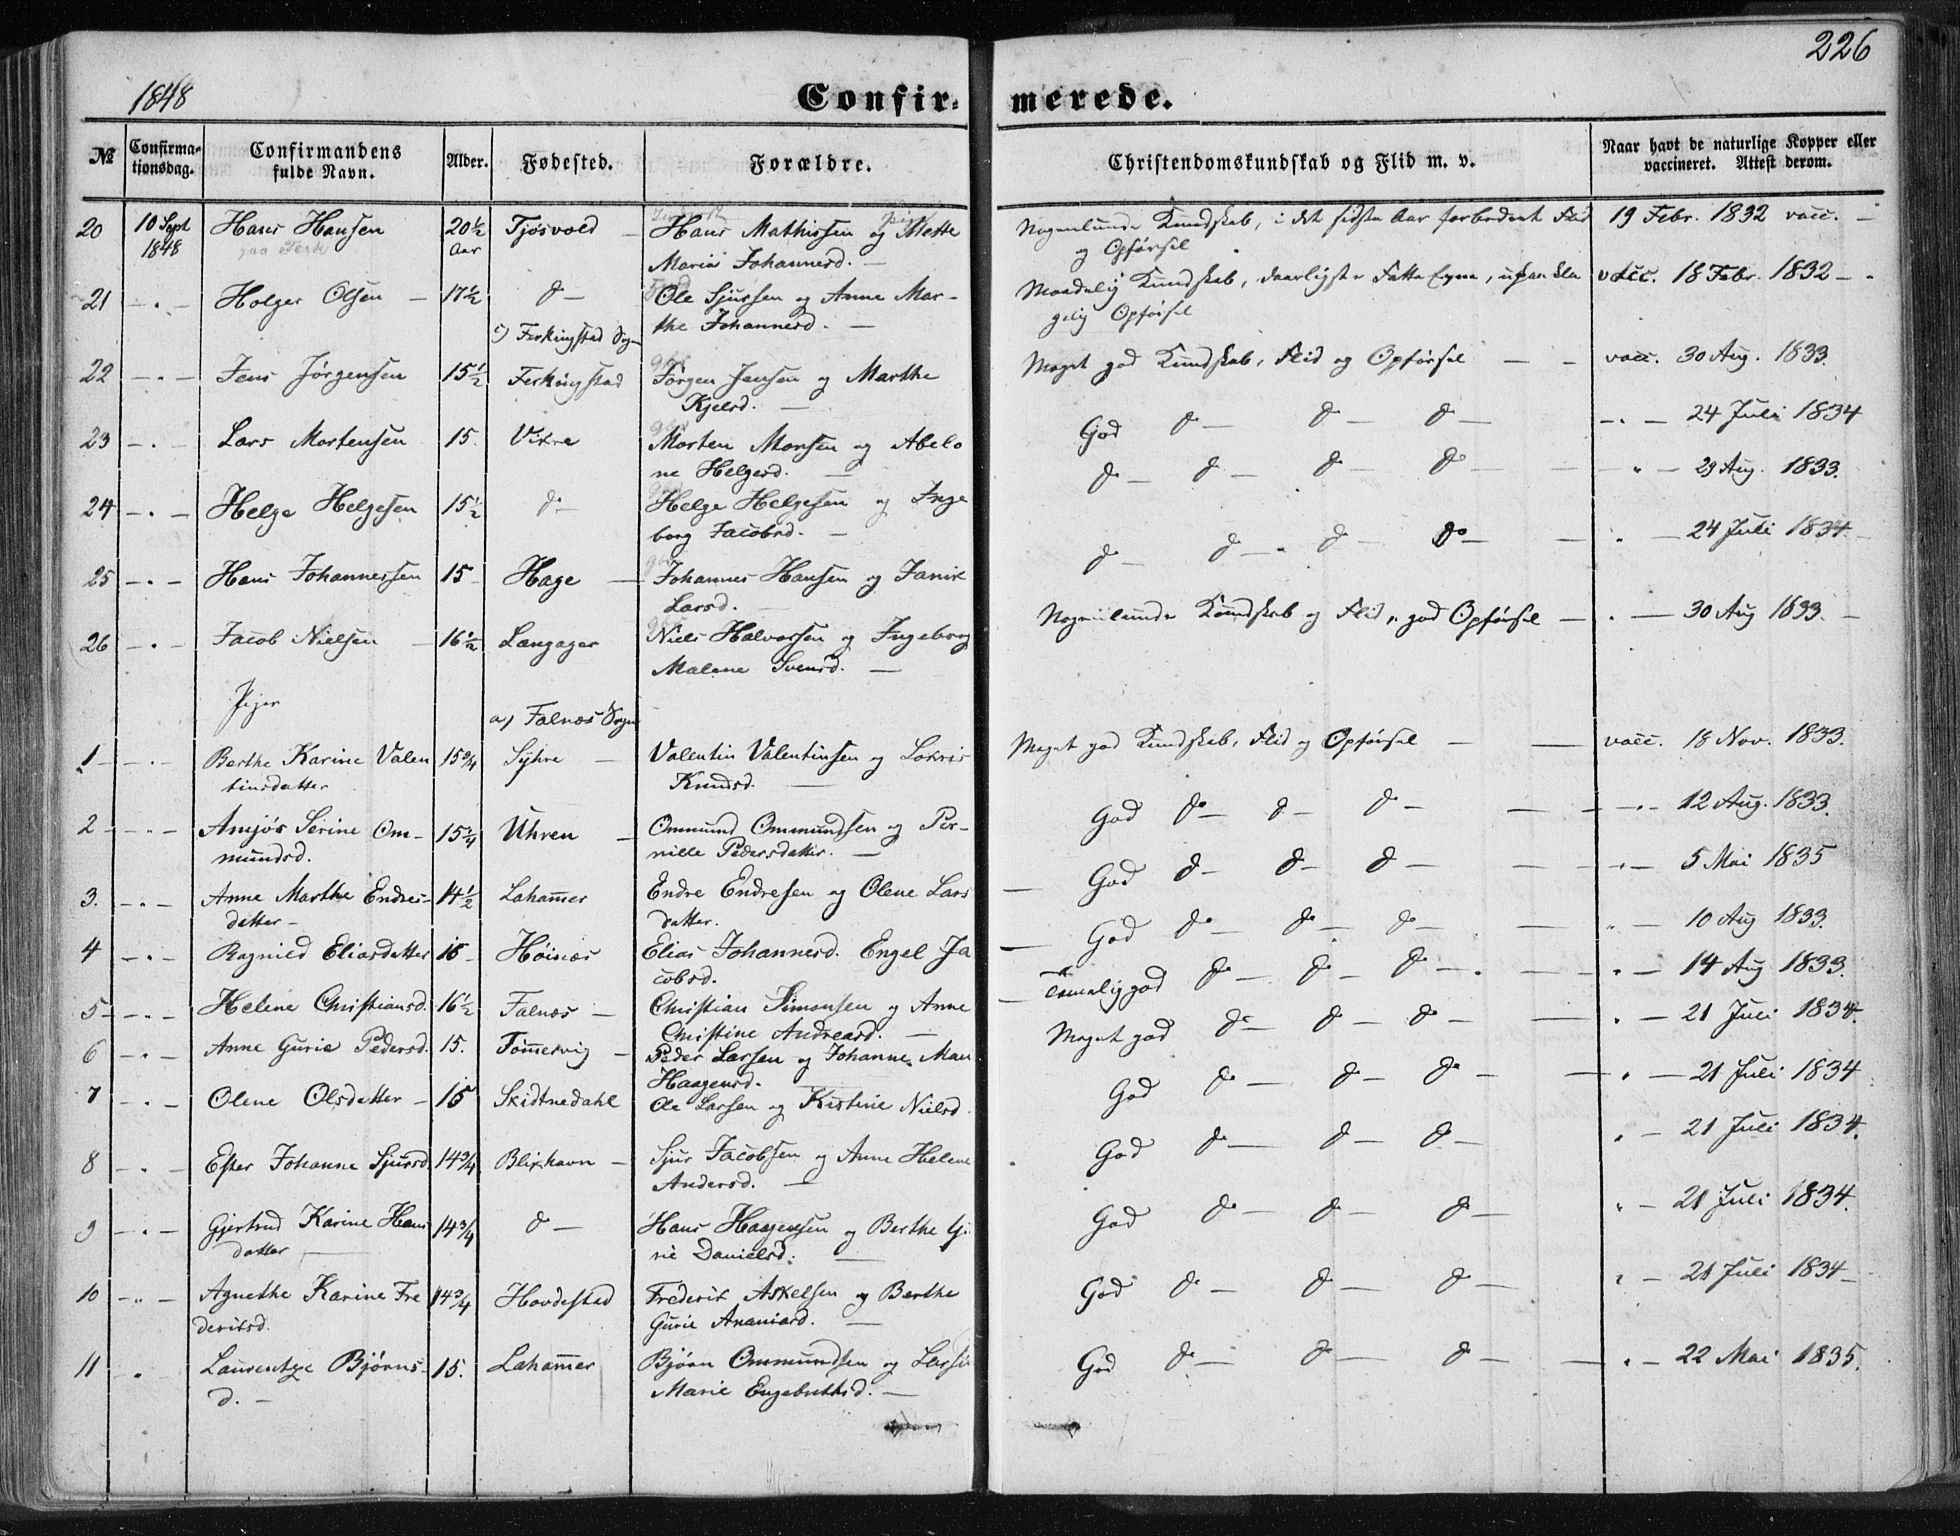 226
1848
Confir-merede.
№ Confirmationsdag. Confirmandens fulde Navn. Alder. Fødested. Forældre. Christendomskundskab og Flid m. v. Naar havt de naturlige Kopper eller vaccineret. Attest derom.
20 10 Sept 1848 Hans Hansen 20½ Aar Tjøsvold – Hans Mathissen og Mette Maria Johannesd. – Nogenlunde Kundskab, i det sidste Aar forbedret Flid og Opførsel 19 Febr. 1832 vacc. –
21 – " – Holger Olsen – 17½ do – Ole Sjursen og Anne Marthe Johannesd. – Maadelig Kundskab, daarligste Fatte Evne, upaaklagelig Opførsel vacc. 18 Febr. 1832 –
c) Ferkingstad Sogn
22 – " – Jens Jørgensen 15½ Ferkingstad Jørgen Jensen og Marthe Kjelsd. – Meget god Kundskab, Flid og Opførsel – – vacc. 30 Aug. 1833.
23 – " – Lars Mortensen 15. Vikre Morten Monsen og Abelone Helgesd. – God do – do – do – – " – 24 Juli 1834
24 – " – Helge Helgesen 15½ do – Helge Helgesen og Ingeborg Jacobsd. – do – do – do – do – – " – 29 Aug. 1833.
25 – " – Hans Johannessen 15 – Hage – Johannes Hansen og Janike Larsd. – do – do – do – do – " – 24 Juli 1834 –
26 – " – Jacob Nielsen – 16½ Langager Niels Halvorsen og Ingeborg Malene Svensd. – Nogenlunde Kundskab og Flid, god Opførsel – " – 30 Aug 1833. –
Piger
a) Falnæs Sogn
1 – – " – Berthe Karine Valentinsdatter 15¾ Syhre – Valentin Valentinsen og Lovise Knudsd. – Meget god Kundskab, Flid og Opførsel – – vacc. 18 Nov. 1833.
2 – – " – Serine Ommundsd. 15¼ Uhren – Ommund Ommundsen og Pernille Pedersdatter. – God do – do – do – – – " – 12 Aug. 1833.
3. – " – Anne Marthe Endresdatter – 14½ Lahammer Endre Endresen og Olene Larsdatter. – God do – do – do – – " – 5 Mai 1835
4 – " – Ragnild Eliasdatter 15 – Høinæs Elias Johannesd. Engel Jacobsd. – God do – do – do – – " – 10 Aug 1833.
5 – – " – Helene Christiansd. 16½ Falnæs – Christian Simonsen og Anne Christine Andreasd. – – Temelig god do – do – do – – " – 14 Aug 1833.
6 – " – Anne Gurie Pedersd. 15. Tømmervig – Peder Larsen og Johanne Haagensd. – Meget god do – do – do – " – 21 Juli 1834.
7 – " – Olene Olsdatter – 15 Skidtnedahl Ole Larsen og Kistine Nielsd. God do – do – do – – " – 21 Juli 1834
8 – " – Ester Johanne Sjursd 14¾ Blikhavn – Sjur Jacobsen og Anne Helene Andersd. – God do – do – do – " – 21 Juli 1834.
9 – " – Gjertrud Karine Hansdatter – 14¾ do – Hans Haagensen og Berthe Danielsd. – God do – do – do – " – 21 Juli 1834.
10 – " – Agnethe Karine Frederiksd. 14¾ Hovdestad Frederik Askelsen og Berthe Gurie Ananiasd. – God do – do – do – " – 21 Juli 1834 –
11 " Laurentze Bjørnsd. – 15. Lahammer Bjørn Ommundsen og Marie Engebretsd. – God do – do – do – – " – 22 Mai 1835.